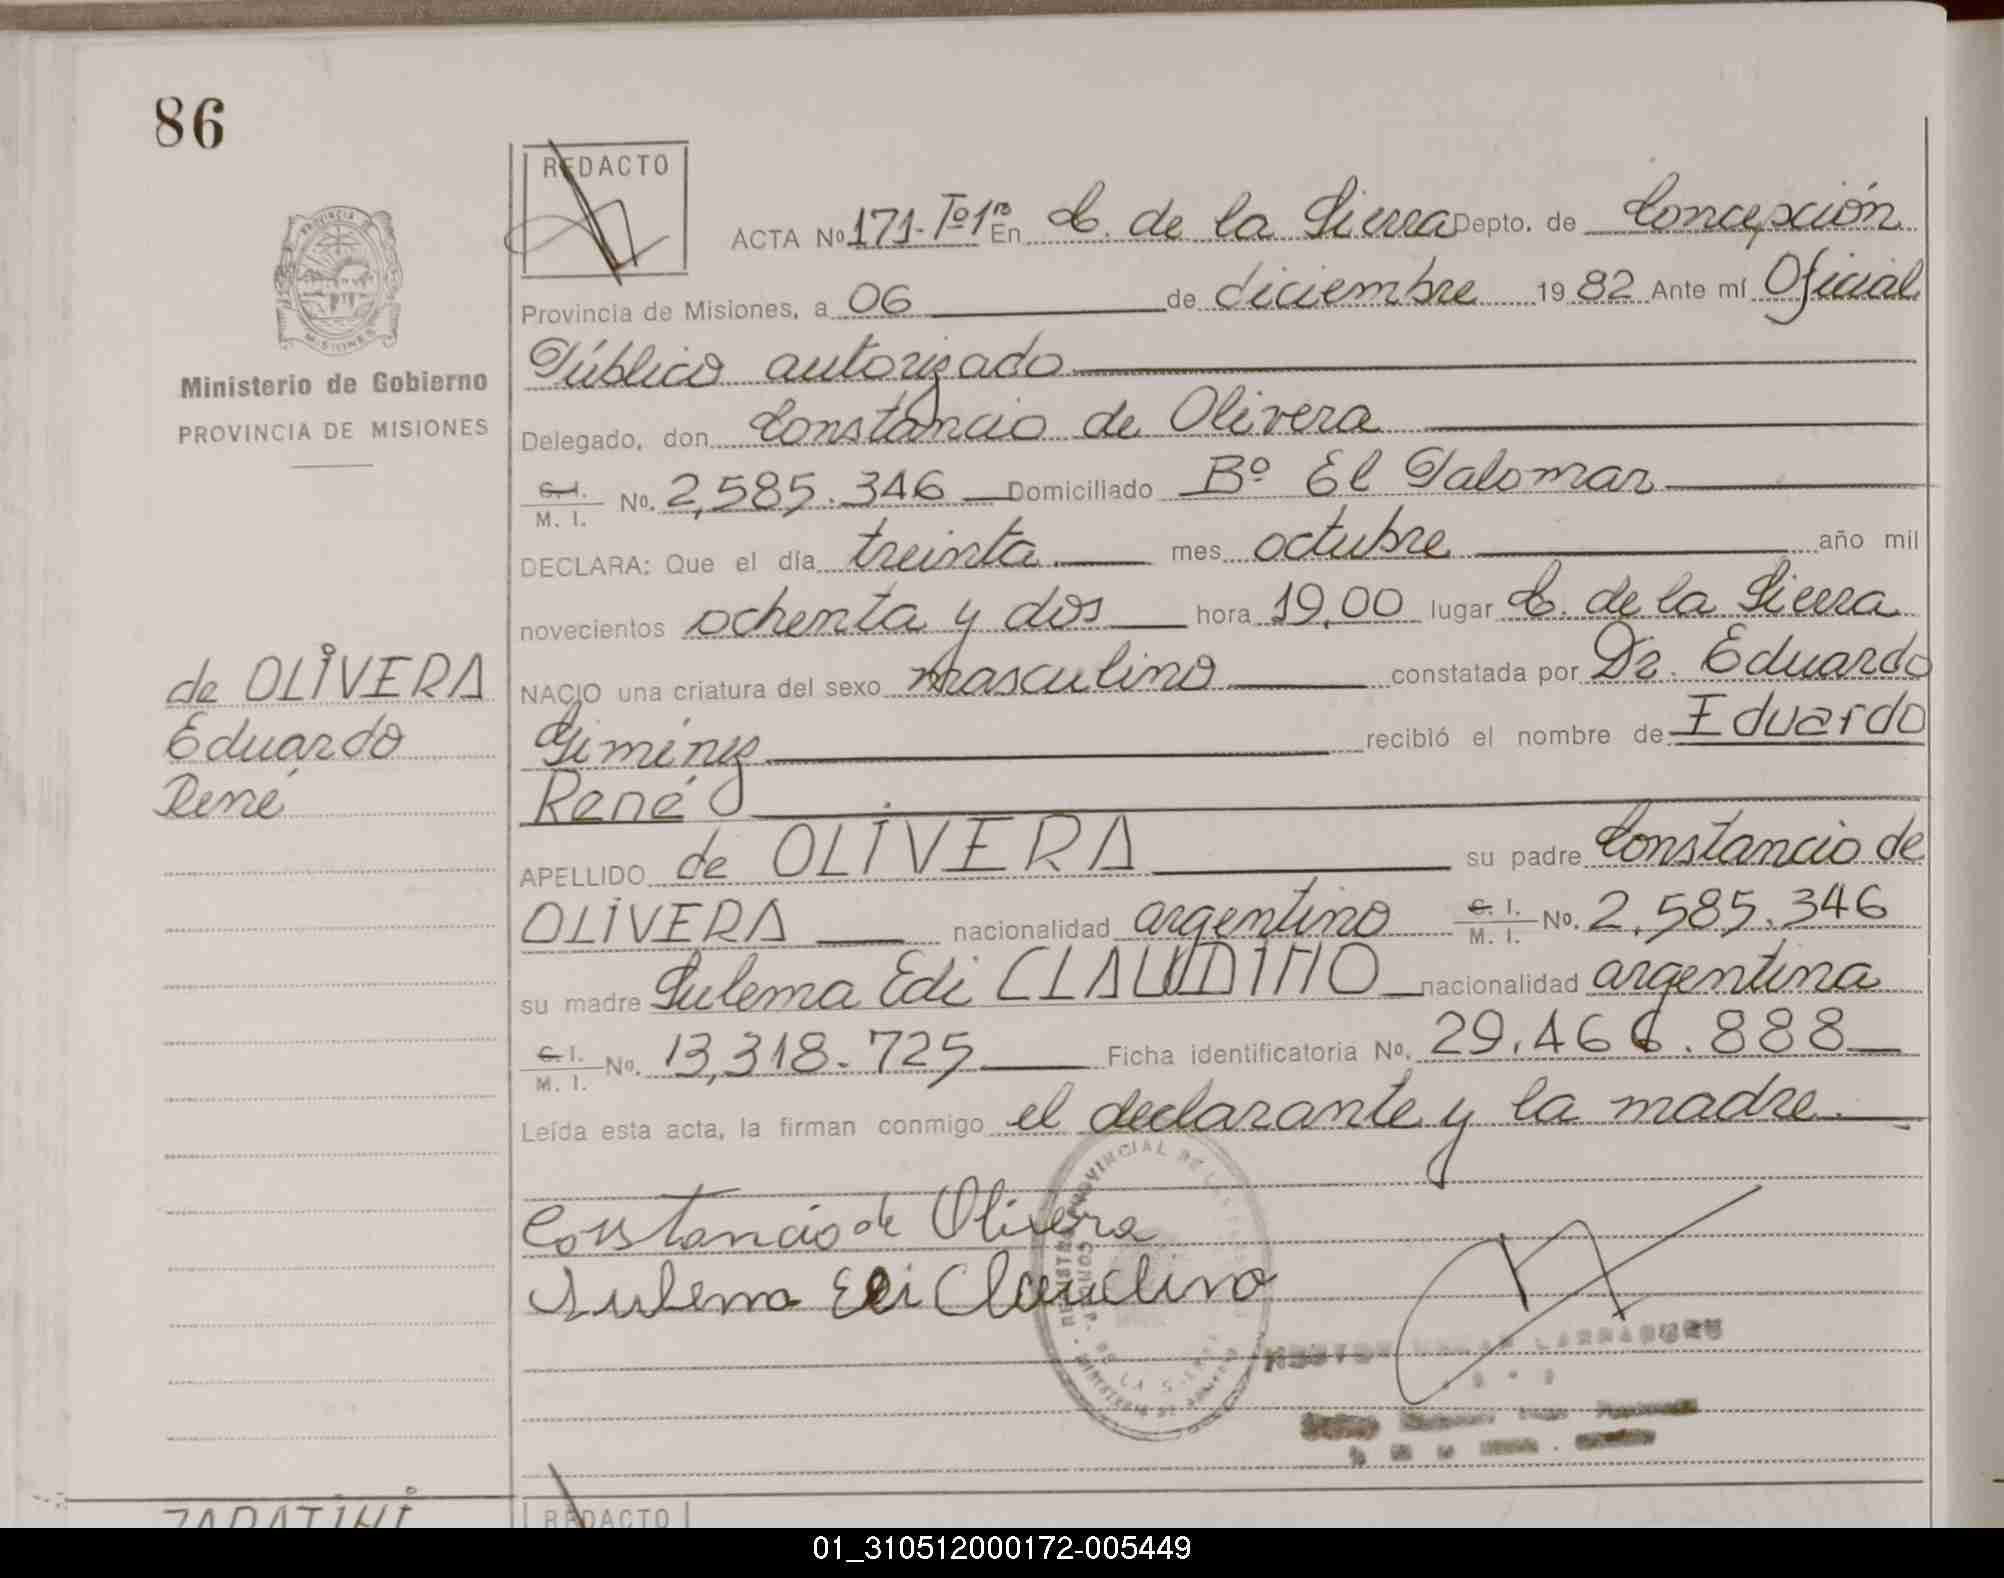 86
REDACTO
ACTA Nº 171-Tº1ro En C. de la Sierra Depto. de Concepción
Provincia de Misiones, a 06 de diciembre 1982 Ante mí Oficial
PROVINCIA
MISIONES
Público autorizado
Ministerio de Gobierno
PROVINCIA DE MISIONES
Delegado, don Constancio de Olivera
C. I. M. I. No. 2,585.346 Domiciliado Bº El Palomar
DECLARA: Que el día treinta mes octubre año mil
novecientos ochenta y dos hora 19,00 lugar C. de la Sierra
de OLIVERA
NACIO una criatura del sexo masculino constatada por Dr. Eduardo
Eduardo
Giménez recibió el nombre de Eduardo
René
René
APELLIDO de OLIVERA su padre Constancio de
OLIVERA nacionalidad argentino C. I. M. I. No. 2,585.346
su madre Sulema Edi CLAUDINO nacionalidad argentina
C. I. M. I. No. 13,318.725 Ficha identificatoria No. 29.466.888
Leída esta acta, la firman conmigo el declarante y la madre.
Constancio de Olivera
Sulema Edi Claudino
REDACTO
01_310512000172-005449